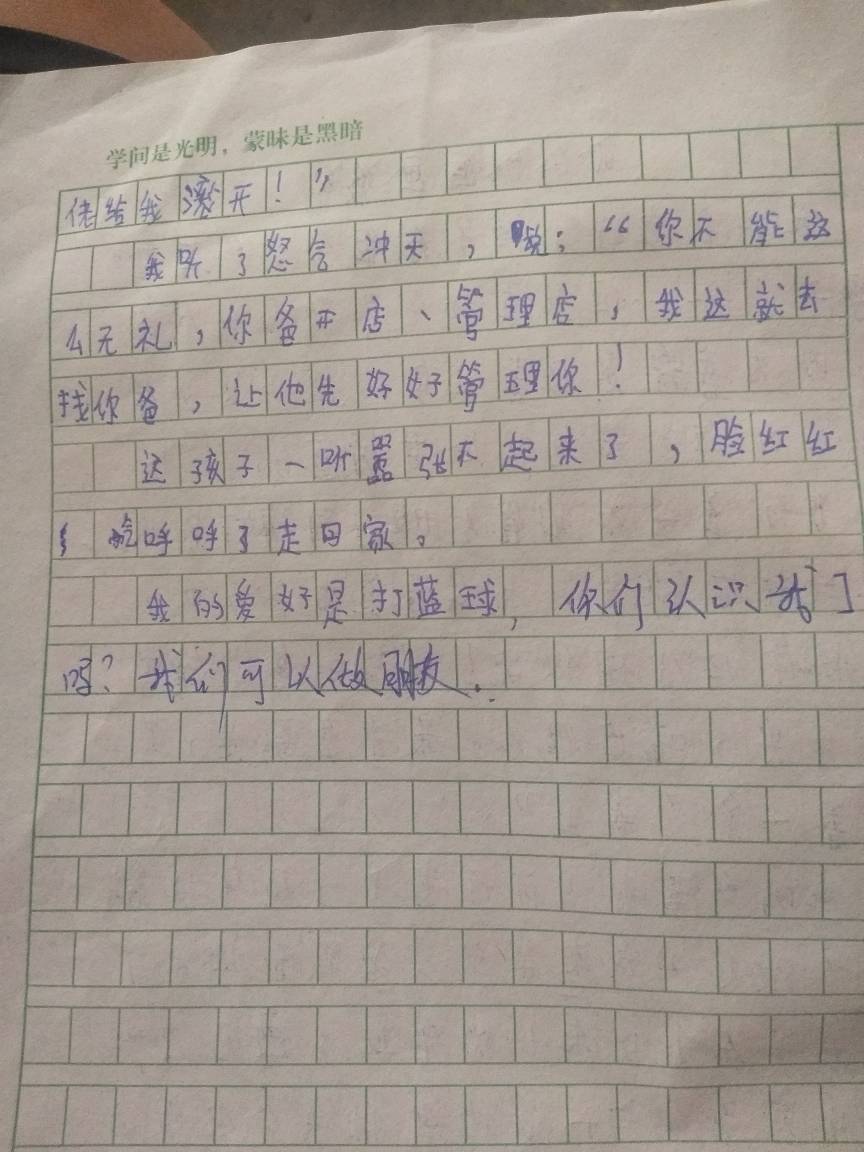 学问是光明，蒙昧是黑暗
佬给我滚开！”
我听了怒气冲天，说：“你不能这
么无礼，你爸开店、管理店，我这就去
找你爸，让他先好好管理你！
这孩子一听嚣张不起来了，脸红红
呼呼了走回家。
我的爱好是打蓝球，你们认识我了
吗？我们可以做朋友．